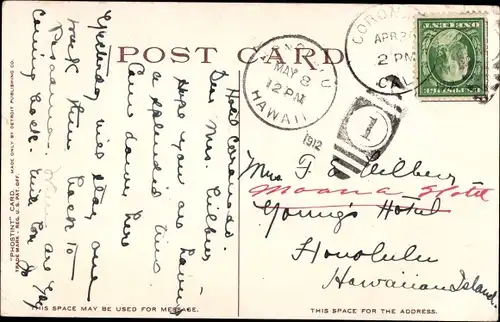 POST CARD
CORON
APR 30
2 PM
CAL
HONOLULU
MAY 8
12 PM
HAWAII
1912
1
Hotel Coronado.
Dear Mrs. Wilbur
Hope you are having
a splendid time.
Came down here
yesterday, will stay one
week then back to
Pasadena. When are you
coming back. With love
Mrs F. E. Wilbur
Moana Hotel
Young's Hotel
Honolulu
Hawaiian Island.
"PHOSTINT" CARD.
TRADE MARK REG. U.S. PAT. OFF.
MADE ONLY BY DETROIT PUBLISHING CO.
THIS SPACE MAY BE USED FOR MESSAGE.
THIS SPACE FOR THE ADDRESS.